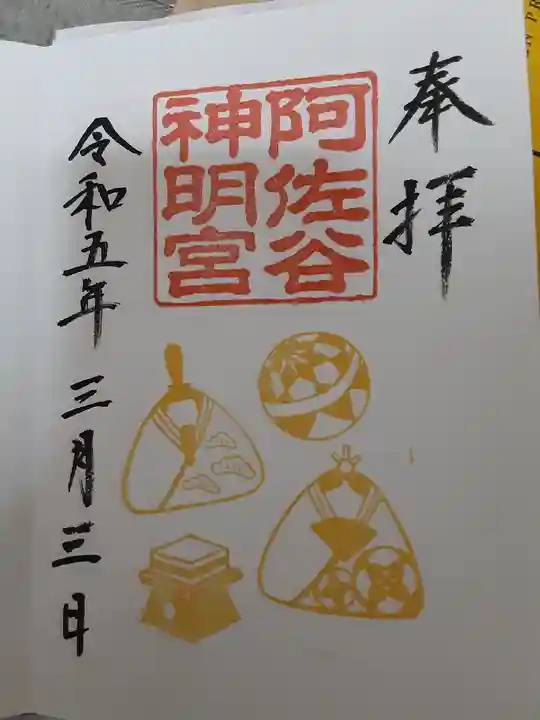 奉拝
阿佐谷
神明宮
令和五年三月三日